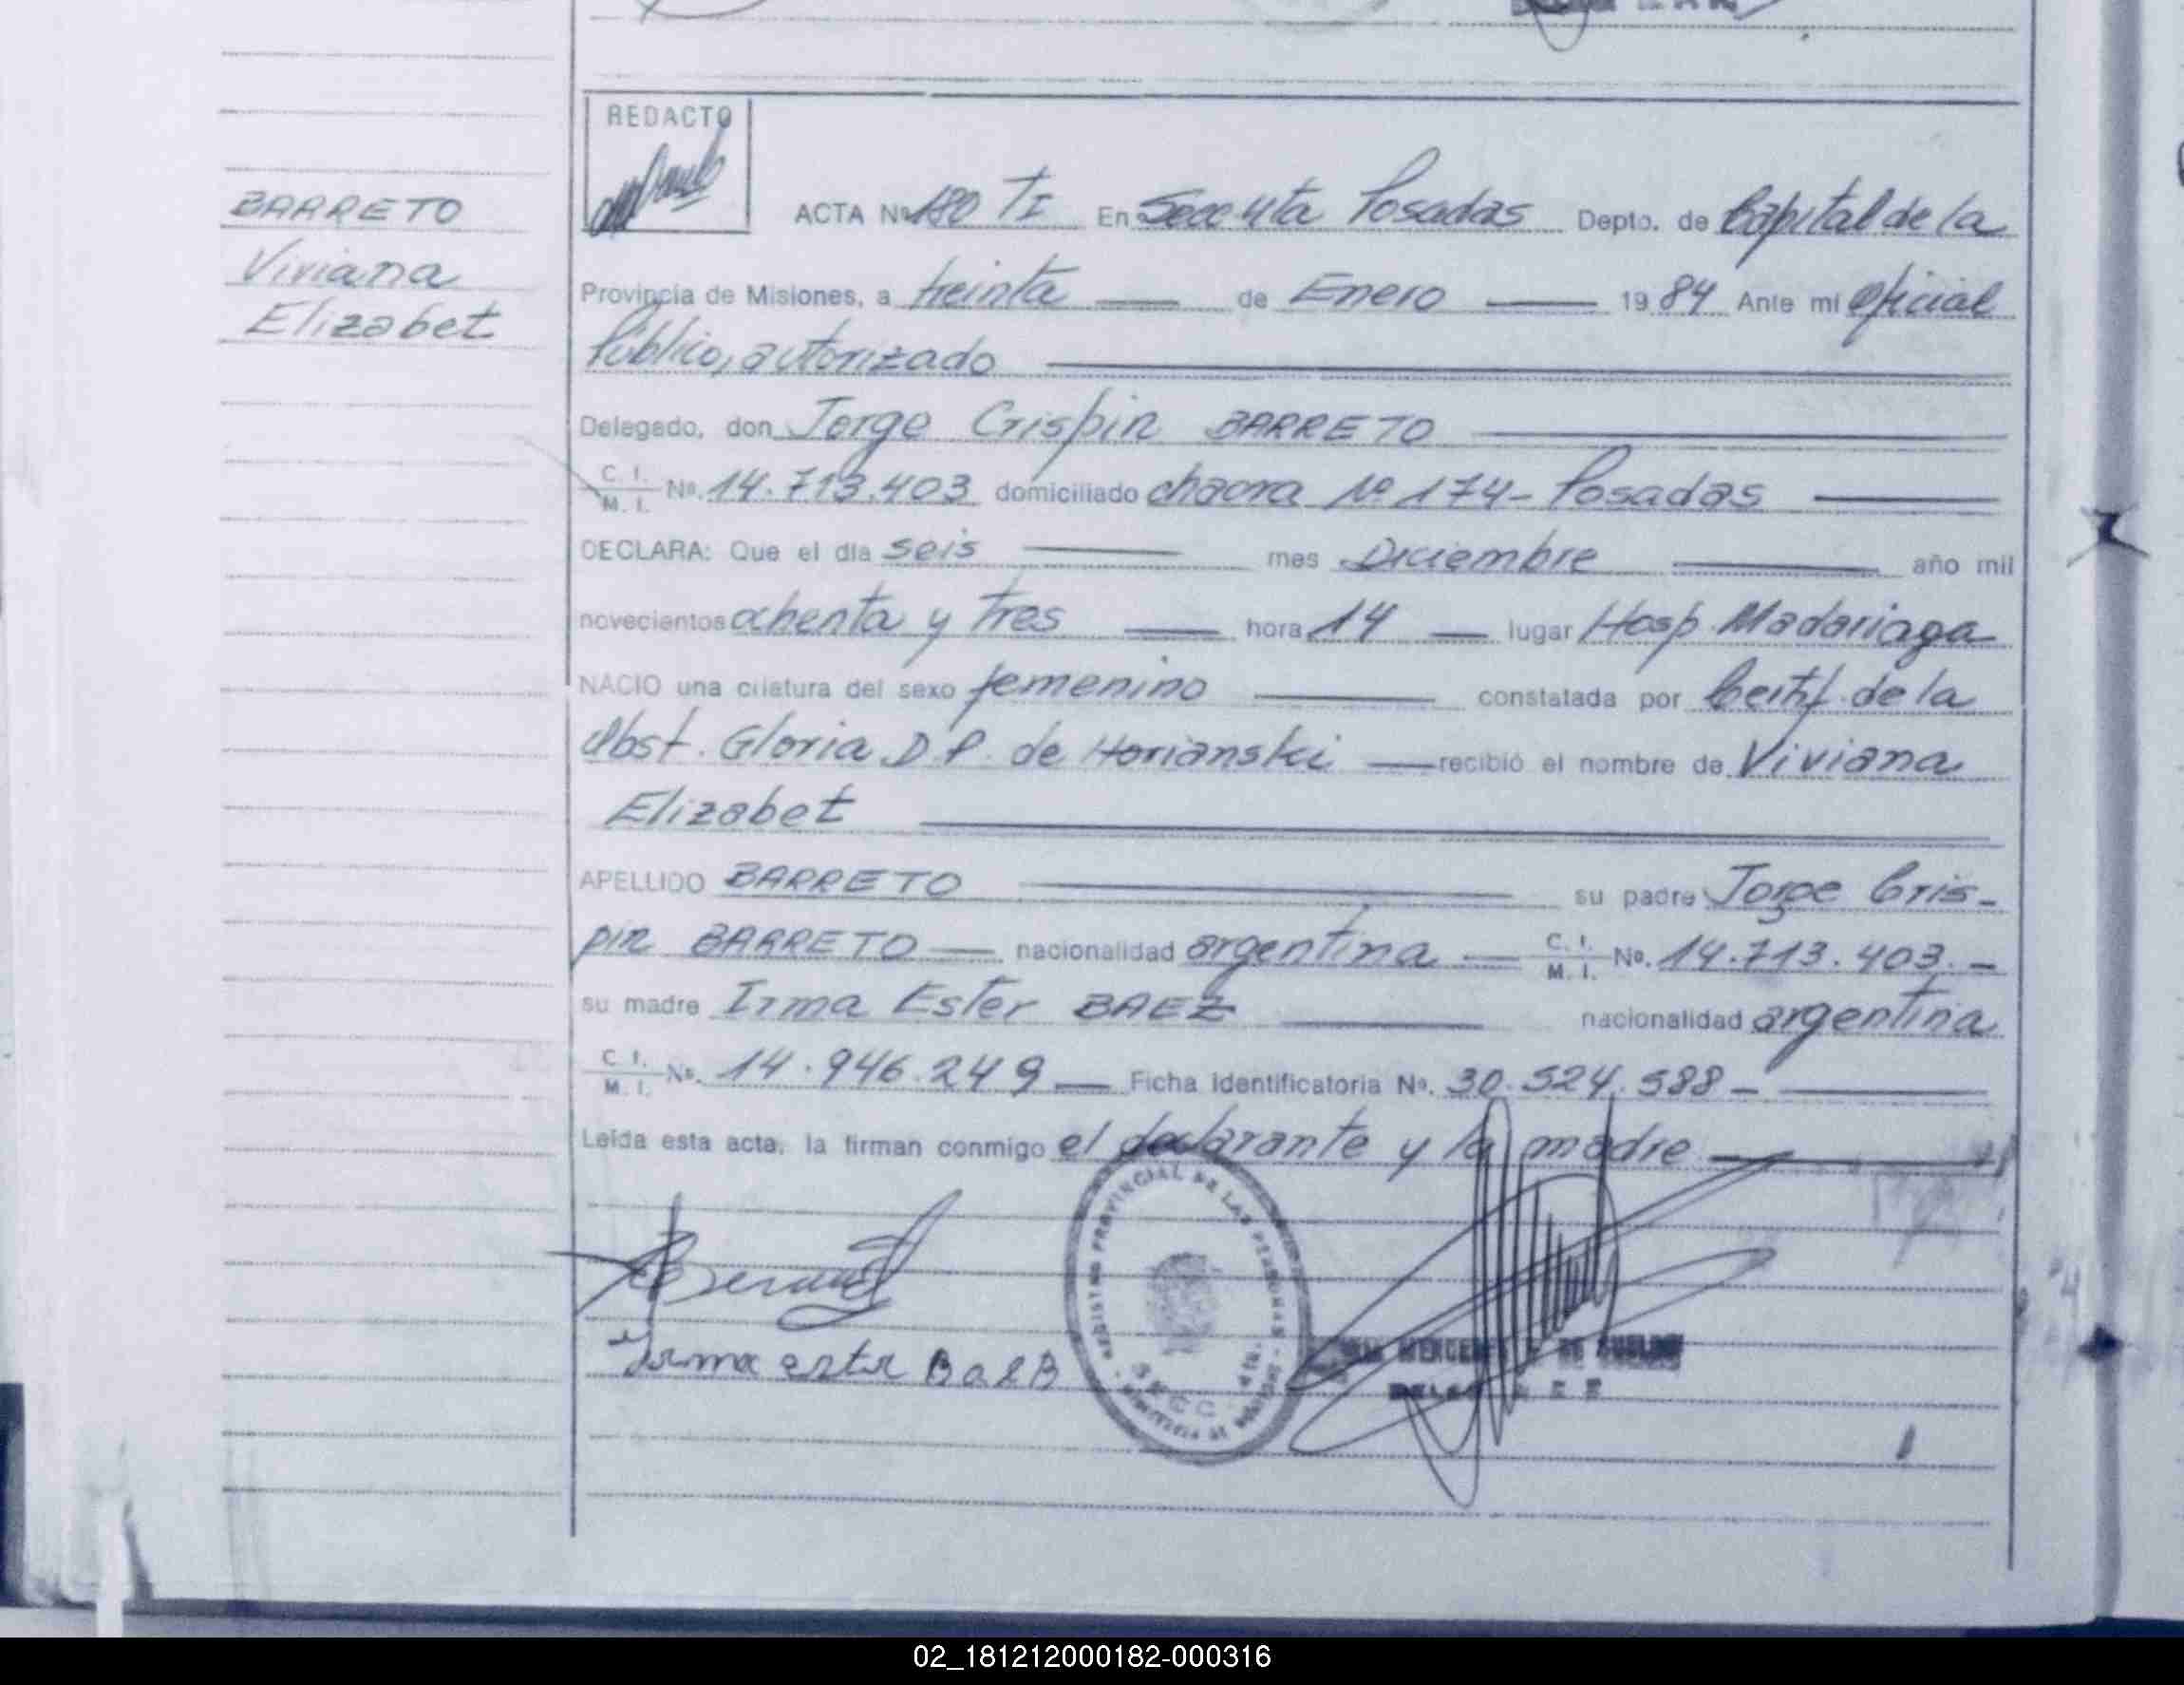 BARRETO
Viviana
Elizabet
REDACTO
ACTA Nº 180 TI En Secc 4ta Posadas Depto. de Capital de la
Provincia de Misiones, a treinta de Enero 1984 Ante mi Oficial
Público, autorizado
Delegado, don Jorge Crispin BARRETO
C. I. M. I. Nº. 14.713.403 domiciliado chacra Nº 174 - Posadas
DECLARA: Que el día seis mes Diciembre año mil
novecientos ochenta y tres hora 14 lugar Hosp. Madariaga
NACIO una criatura del sexo femenino constatada por Certif. de la
Obst. Gloria D.P. de Horianski recibió el nombre de Viviana
Elizabet
APELLIDO BARRETO su padre Jorge Cris-
pin BARRETO nacionalidad argentina C. I. M. I. Nº. 14.713.403.-
su madre Irma Ester BAEZ nacionalidad argentina
C. I. M. I. Nº. 14.946.249 Ficha identificatoria Nº. 30.524.588 -
Leída esta acta, la firman conmigo el declarante y la madre
REGISTRO PROVINCIAL DE LAS PERSONAS
SECC. 4ta.
Irma ester BaeB
02_181212000182-000316